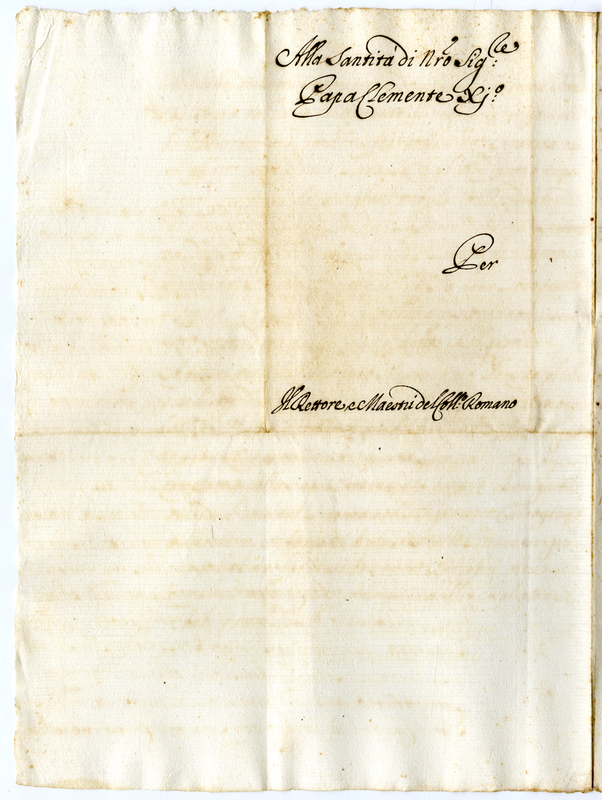 Alla Santità di Nro Sig.re
Papa Clemente XJ.o
Per
Il Rettore, e Maestri del Coll.o Romano